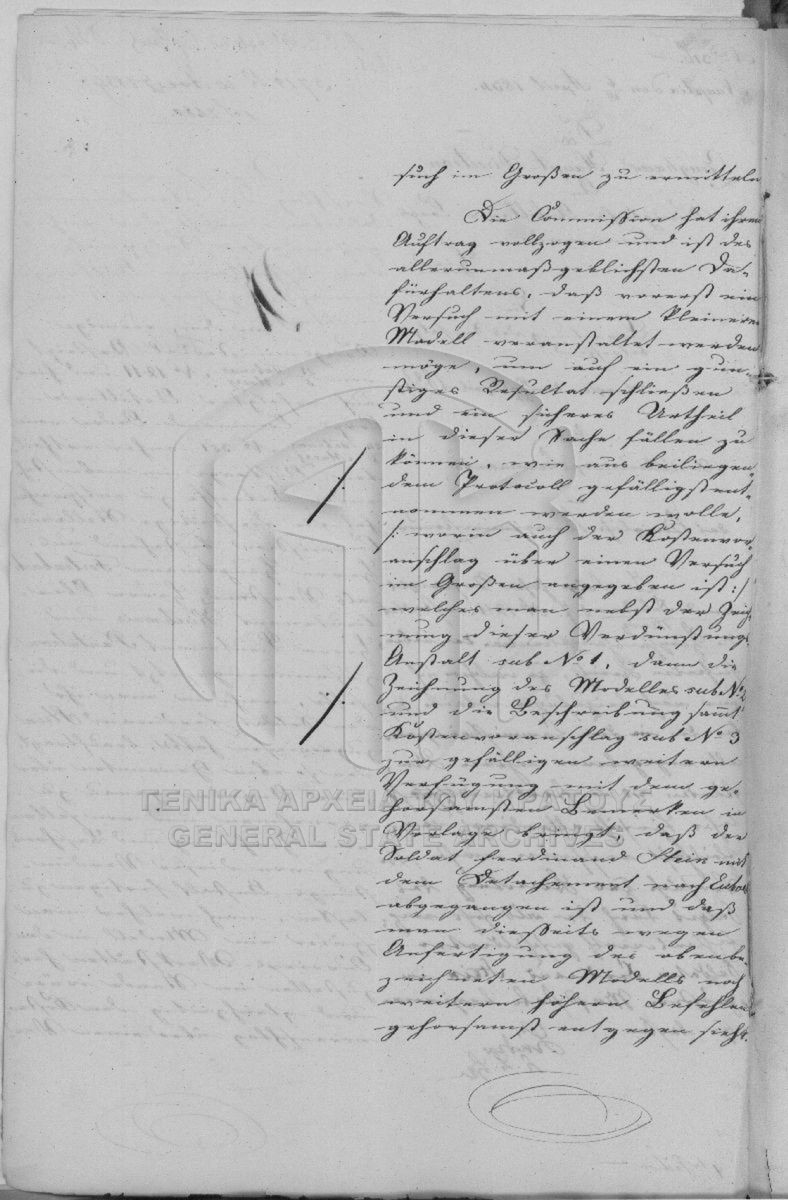 such im Großen zu ermitteln
Die Commission hat ihren
Auftrag vollzogen und ist des
allerunmaßgeblichsten Da-
fürhaltens, daß vorerst ein
Versuch mit einem kleineren
Modell veranstaltet werden
möge, um auf ein gün-
stiges Resultat schließen
und ein sicheres Urtheil
in dieser Sache fällen zu
können, wie aus beiliegen-
dem Protocoll gefälligst ent-
nommen werden wolle,
/: worin auch der Kostenvor-
anschlag über einen Versuch
im Großen angegeben ist :/
welches man nebst der Zeich-
nung dieser Verdünstungs
Anstalt sub No 1, dann die
Zeichnung des Modelles sub No 2
und die Beschreibung sammt
Kostenvoranschlag sub No 3
zur gefälligen weitern
Verfügung mit dem ge-
horsamsten Bemerken in
Vorlage bringt, daß der
Soldat Ferdinand Stein mit
dem Detachement nach
abgegangen ist und daß
man diesseits wegen
Anfertigung des obenbe-
zeichneten Modells noch
weitern höhern Befehlen
gehorsamst entgegen sieht.
ΓΕΝΙΚΑ ΑΡΧΕΙΑ ΤΟΥ ΚΡΑΤΟΥΣ
GENERAL STATE ARCHIVES